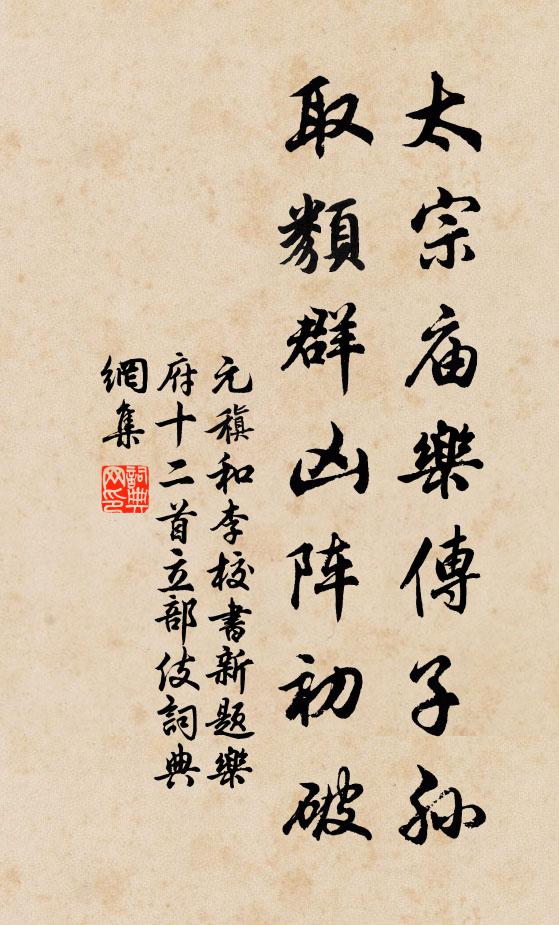 太宗庙樂傳子孫
取類群凶阵初破
元稹和李校書新题樂
府十二首立部伎詞典
網集
詞典
网印